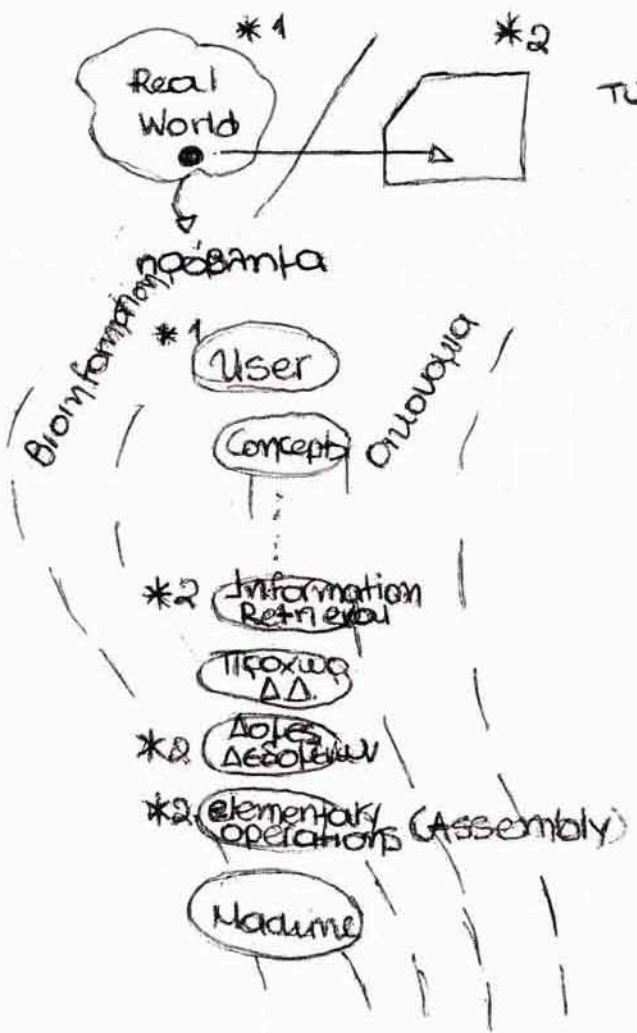 *1
*2
Real
World
προβλητα
Βιοινformation
*1
User
Concepts
Οικονομια
*2 Information
Retrieval
Προχωρ
ΔΔ.
*2 Δομες
Δεδομενων
*2 elementary
operations (Assembly)
Machine